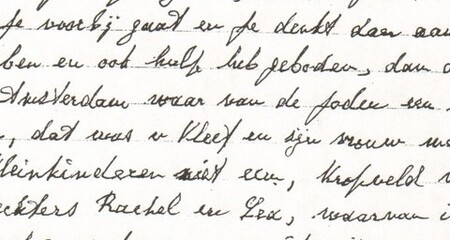 je voorbij gaat en je denkt daar aan
ben en ook hulp heb geboden, dan
Amsterdam waar van de Joden een
, dat was v Kleef en zijn vrouw
kleinkinderen niet een, Kropveld
Rachel en Lex, waarvan